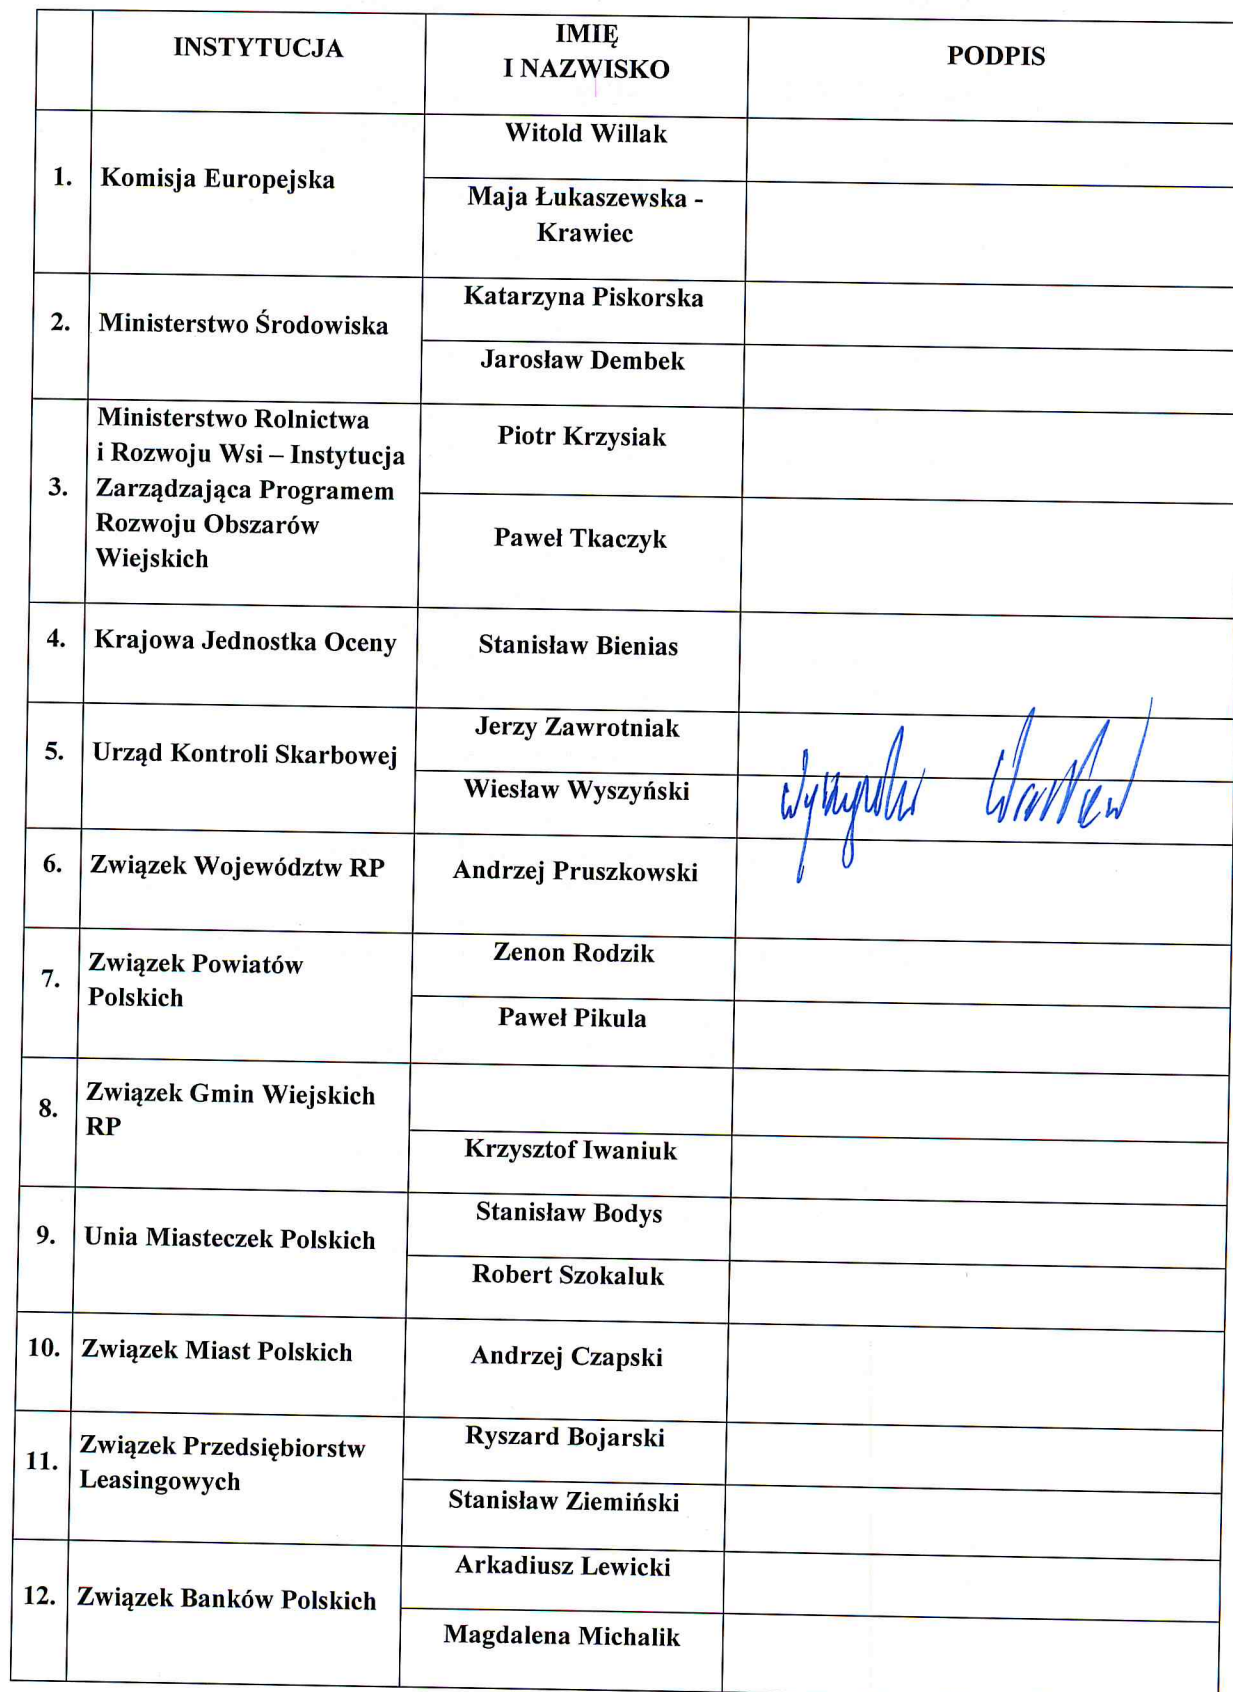 INSTYTUCJA
IMIĘ
I NAZWISKO
PODPIS
1.
Komisja Europejska
Witold Willak
Maja Łukaszewska -
Krawiec
2.
Ministerstwo Środowiska
Katarzyna Piskorska
Jarosław Dembek
3.
Ministerstwo Rolnictwa
i Rozwoju Wsi – Instytucja
Zarządzająca Programem
Rozwoju Obszarów
Wiejskich
Piotr Krzysiak
Paweł Tkaczyk
4.
Krajowa Jednostka Oceny
Stanisław Bienias
5.
Urząd Kontroli Skarbowej
Jerzy Zawrotniak
Wiesław Wyszyński
6.
Związek Województw RP
Andrzej Pruszkowski
7.
Związek Powiatów
Polskich
Zenon Rodzik
Paweł Pikula
8.
Związek Gmin Wiejskich
RP
Krzysztof Iwaniuk
9.
Unia Miasteczek Polskich
Stanisław Bodys
Robert Szokaluk
10.
Związek Miast Polskich
Andrzej Czapski
11.
Związek Przedsiębiorstw
Leasingowych
Ryszard Bojarski
Stanisław Ziemiński
12.
Związek Banków Polskich
Arkadiusz Lewicki
Magdalena Michalik